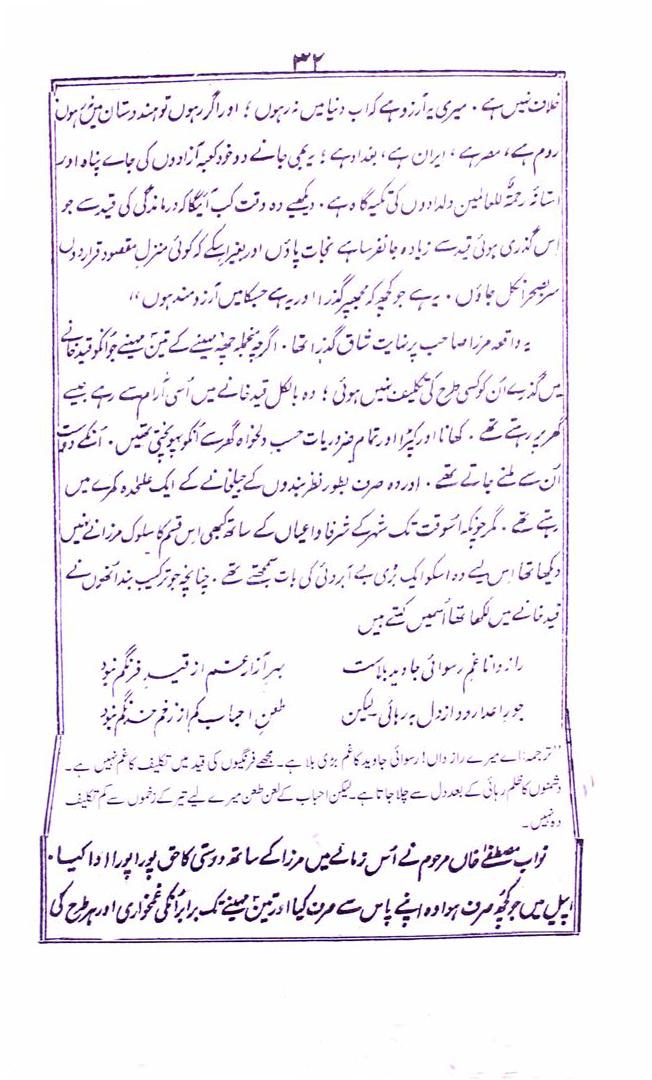 ۳۲
خلاف نہیں ہے۔ میری یہ آرزو ہے کہ اب دنیا میں نہ رہوں؛ اور اگر رہوں تو ہندوستان میں نہ رہوں
روم ہے، مصر ہے، ایران ہے، بغداد ہے؛ یہ بھی جانے دو خود کعبہ آزادوں کی جاے پناہ اور
آستانۂ رحمۃ للعالمین دلدادوں کی تکیہ گاہ ہے۔ دیکھیے وہ وقت کب آئیگا کہ درماندگی کی قید سے جو
اس گذری ہوئی قید سے زیادہ جانفرسا ہے نجات پاؤں اور بغیر اسکے کہ کوئی منزل مقصود قرار دوں
سر بصحرا نکل جاؤں۔ یہ ہے جو کچھ کہ مجھپر گذرا اور یہ ہے جسکا میں آرزومند ہوں"
یہ واقعہ مرزا صاحب پر نہایت شاق گذرا تھا۔ اگرچہ منجملہ چھہ مہینے کے تین مہینے جو انکو قید خانے
میں گذرے اُن کو کسی طرح کی تکلیف نہیں ہوئی؛ وہ بالکل قید خانے میں اُسی آرام سے رہے جیسے
گھر پر رہتے تھے۔ کھانا اور کپڑا اور تمام ضروریات حسب دلخواہ گھر سے اُنکو پہونچتی تھیں۔ اُنکے دوست
اُن سے ملنے جاتے تھے۔ اور وہ صرف بطور نظر بندوں کے جیلخانے کے ایک علٰحدہ کمرے میں
رہتے تھے۔ مگر چونکہ اُسوقت تک شہر کے شرفا و اعیان کے ساتھ کبھی اس قسم کا سلوک مرزا نے نہیں
دیکھا تھا اس لیے وہ اسکو ایک بڑی بے آبروئی کی بات سمجھتے تھے۔ چنانچہ جو ترکیب بند اُنھوں نے
قید خانے میں لکھا تھا اُسمیں کہتے ہیں
راز دانا غم رسوائی جاوید بلاست بہر آزار غم از قید فرنگم نبود
جور اعدا رود از دل بہ رہائی لیکن طعن احباب کم از زخم خدنگم نبود
"ترجمہ: اے میرے رازداں! رسوائی جاوید کا غم بڑی بلا ہے۔ مجھے فرنگیوں کی قید میں تکلیف کا غم نہیں ہے۔
دشمنوں کا ظلم رہائی کے بعد دل سے چلا جاتا ہے۔ لیکن احباب کے لعن طعن میرے لیے تیر کے زخموں سے کم تکلیف
دہ نہیں۔
نواب مصطفٰے خاں مرحوم نے اُس زمانے میں مرزا کے ساتھ دوستی کا حق پورا پورا ادا کیا۔
اپیل میں جو کچھ صرف ہوا وہ اپنے پاس سے صرف کیا اور تین مہینے تک برابر اُنکی غمخواری اور ہر طرح کی